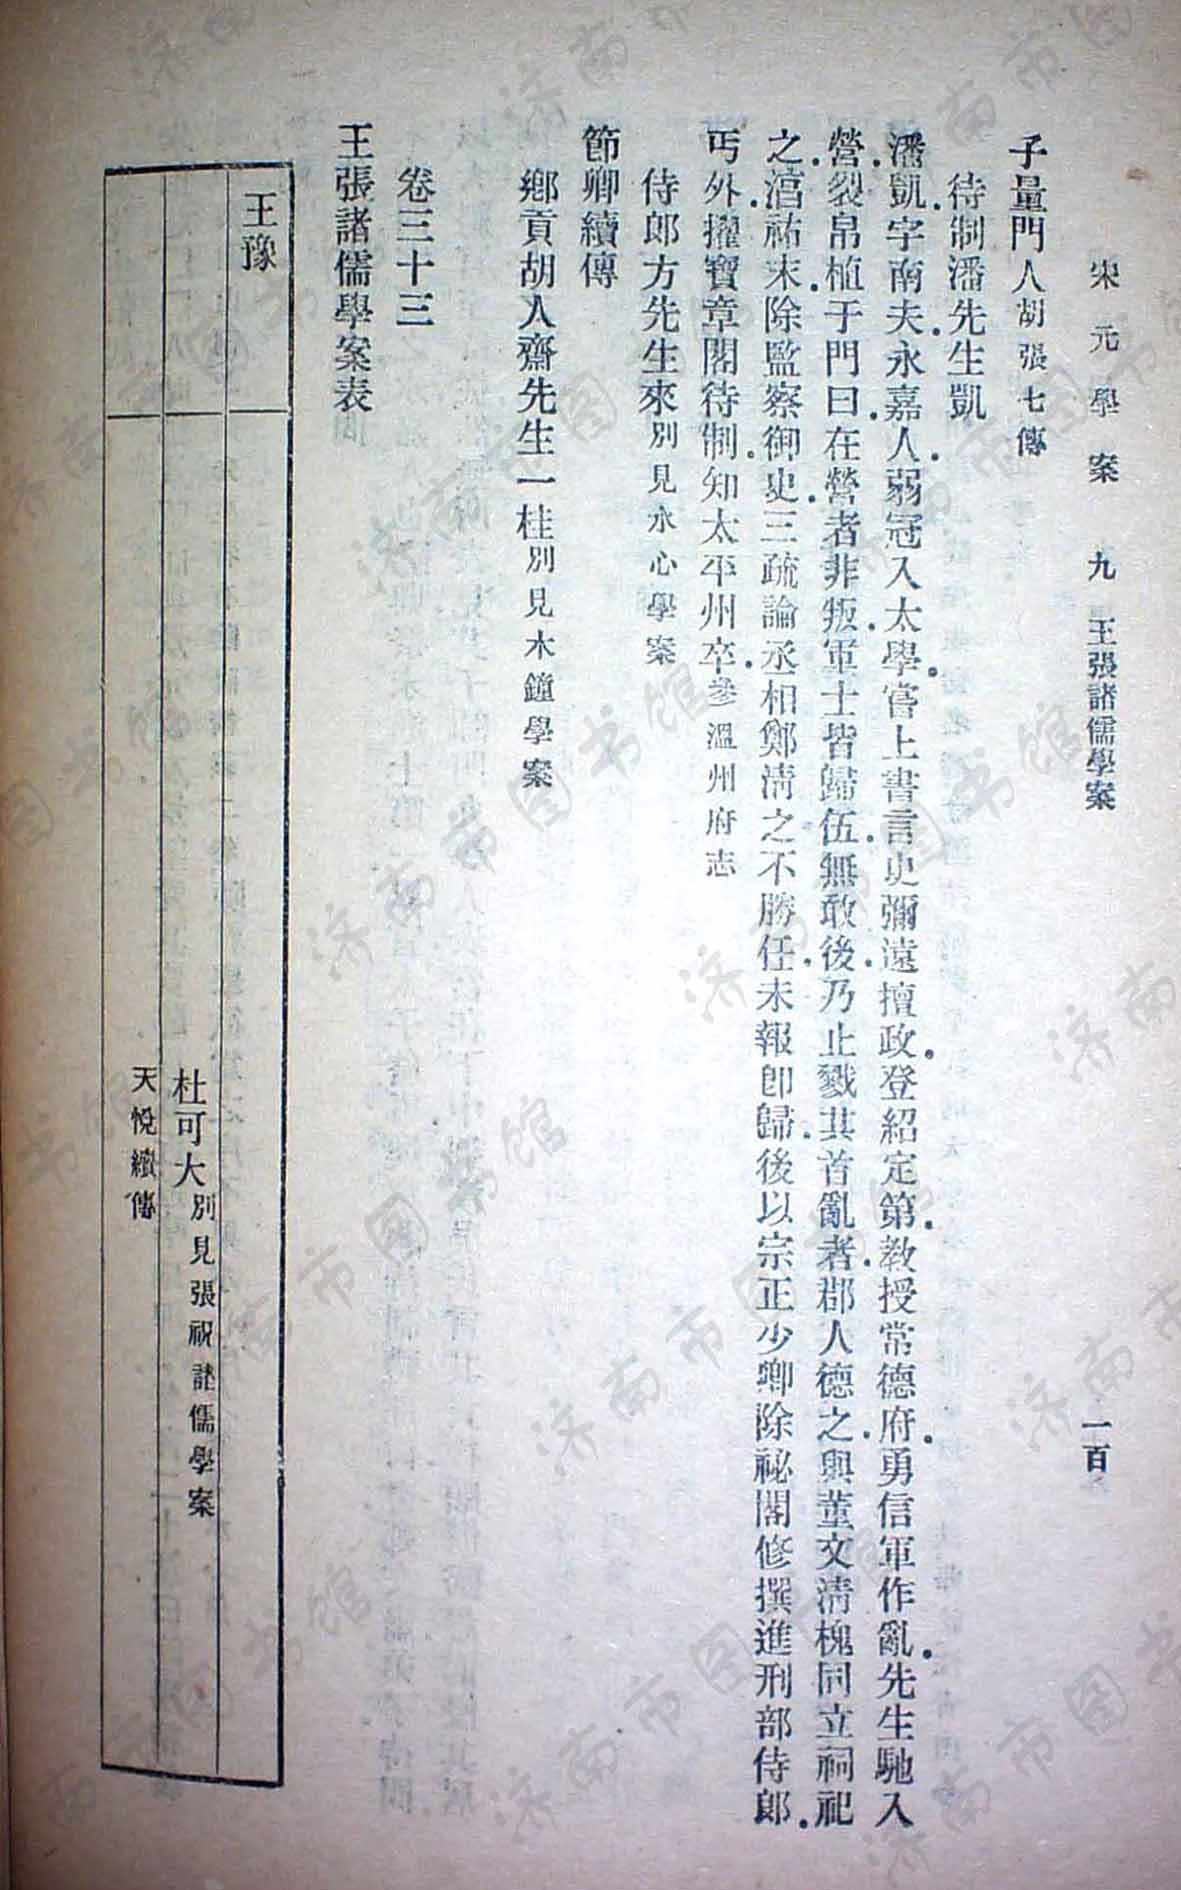 宋元學案 九 王張諸儒學案 一百
子量門人胡張七傳
待制潘先生凱
潘凱字南夫永嘉人弱冠入太學嘗上書言史彌遠擅政登紹定第教授常德府勇信軍作亂先生馳入
營裂帛植于門曰在營者非叛軍士皆歸伍無敢後乃止戮其首亂者郡人德之與董文清槐同立祠祀
之淳祐末除監察御史三疏論丞相鄭清之不勝任未報卽歸後以宗正少卿除祕閣修撰進刑部侍郎
丐外擢寶章閣待制知太平州卒參溫州府志
侍郎方先生來別見水心學案
節卿續傳
鄉貢胡人齋先生一桂別見木鐘學案
卷三十三
王張諸儒學案表
王豫
杜可大別見張祝諸儒學案
天悅續傳